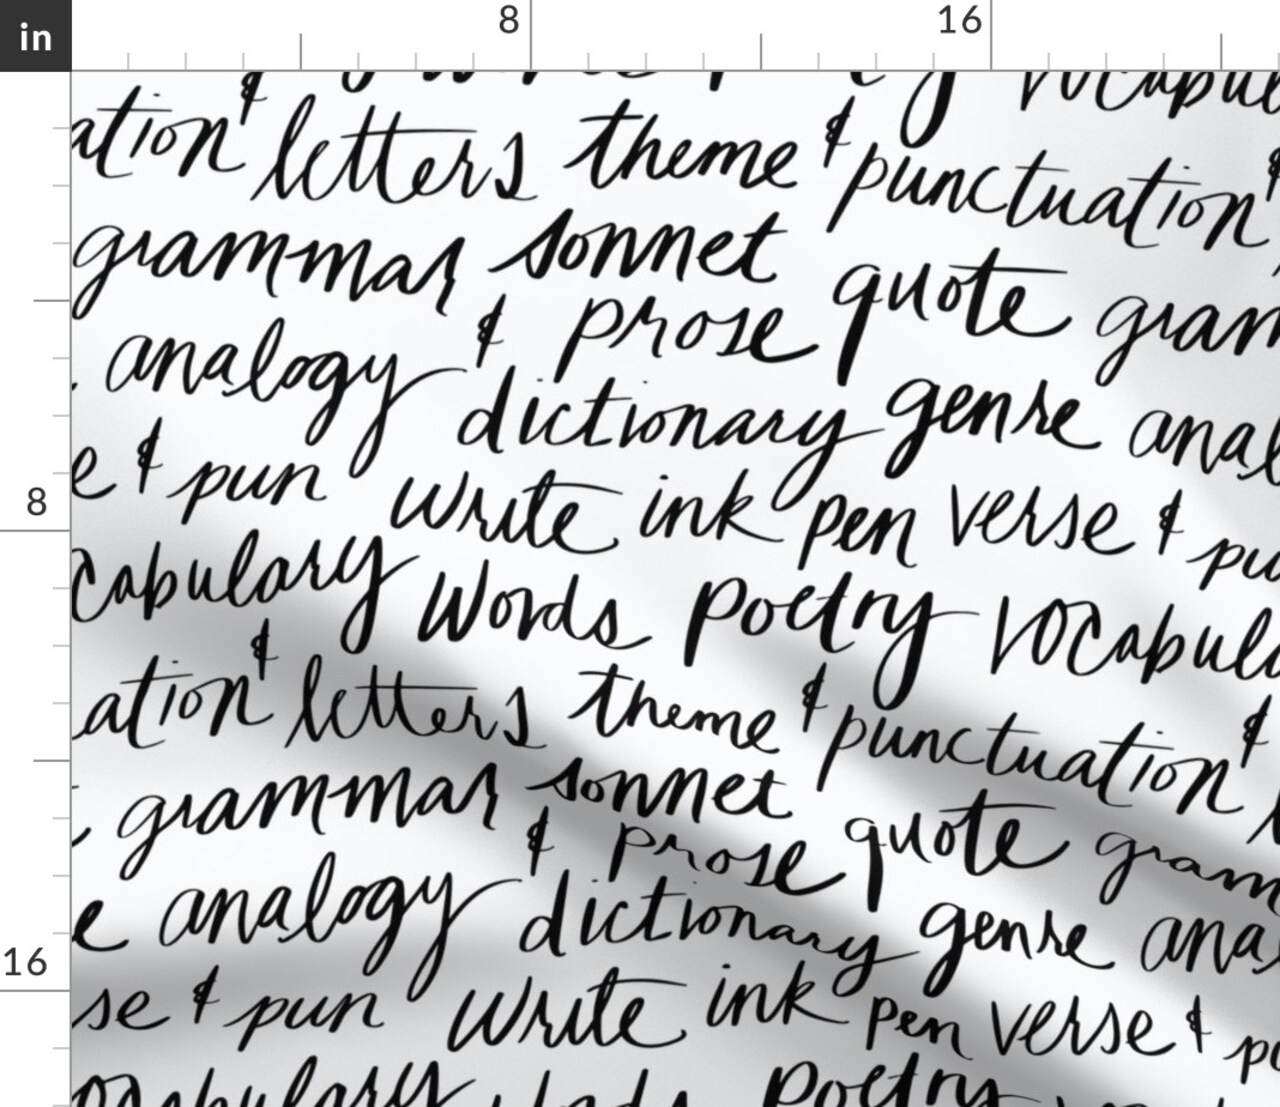 in 8 16
vocabul
ation & letters theme & punctuation &
grammar sonnet quote gram
analogy & prose
dictionary genre anal
e & pun write ink pen verse & pu
cabulary words poetry vocabula
8
ation & letters theme & punctuation &
grammar sonnet quote gram
& prose
e analogy dictionary genre ana
se & pun write ink pen verse & po
16
ocabulary words poetry